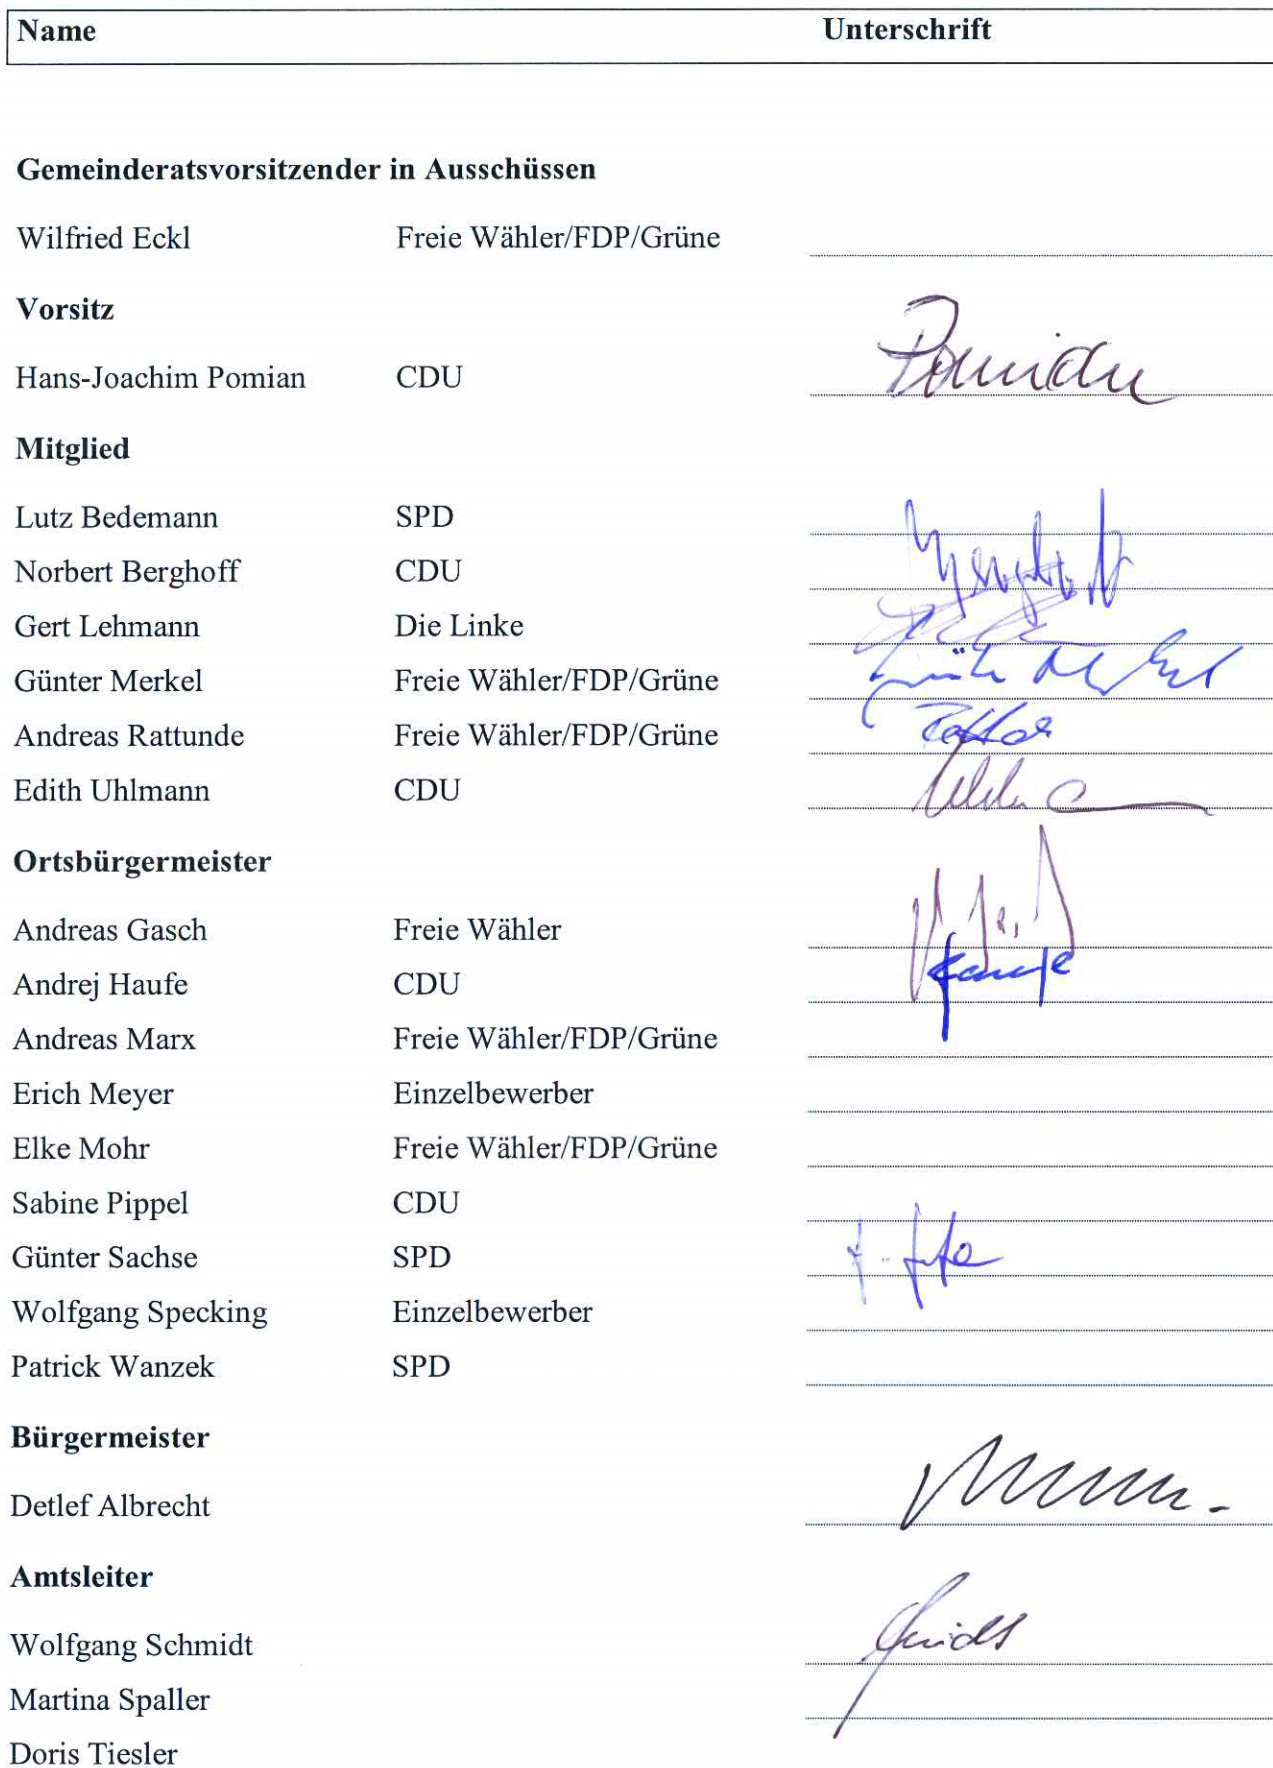 Name Unterschrift
Gemeinderatsvorsitzender in Ausschüssen
Wilfried Eckl Freie Wähler/FDP/Grüne
Vorsitz
Hans-Joachim Pomian CDU Pomian
Mitglied
Lutz Bedemann SPD
Norbert Berghoff CDU Berghoff
Gert Lehmann Die Linke
Günter Merkel Freie Wähler/FDP/Grüne Günter Merkel
Andreas Rattunde Freie Wähler/FDP/Grüne
Edith Uhlmann CDU
Ortsbürgermeister
Andreas Gasch Freie Wähler
Andrej Haufe CDU Haufe
Andreas Marx Freie Wähler/FDP/Grüne
Erich Meyer Einzelbewerber
Elke Mohr Freie Wähler/FDP/Grüne
Sabine Pippel CDU
Günter Sachse SPD
Wolfgang Specking Einzelbewerber
Patrick Wanzek SPD
Bürgermeister
Detlef Albrecht
Amtsleiter
Wolfgang Schmidt Schmidt
Martina Spaller
Doris Tiesler